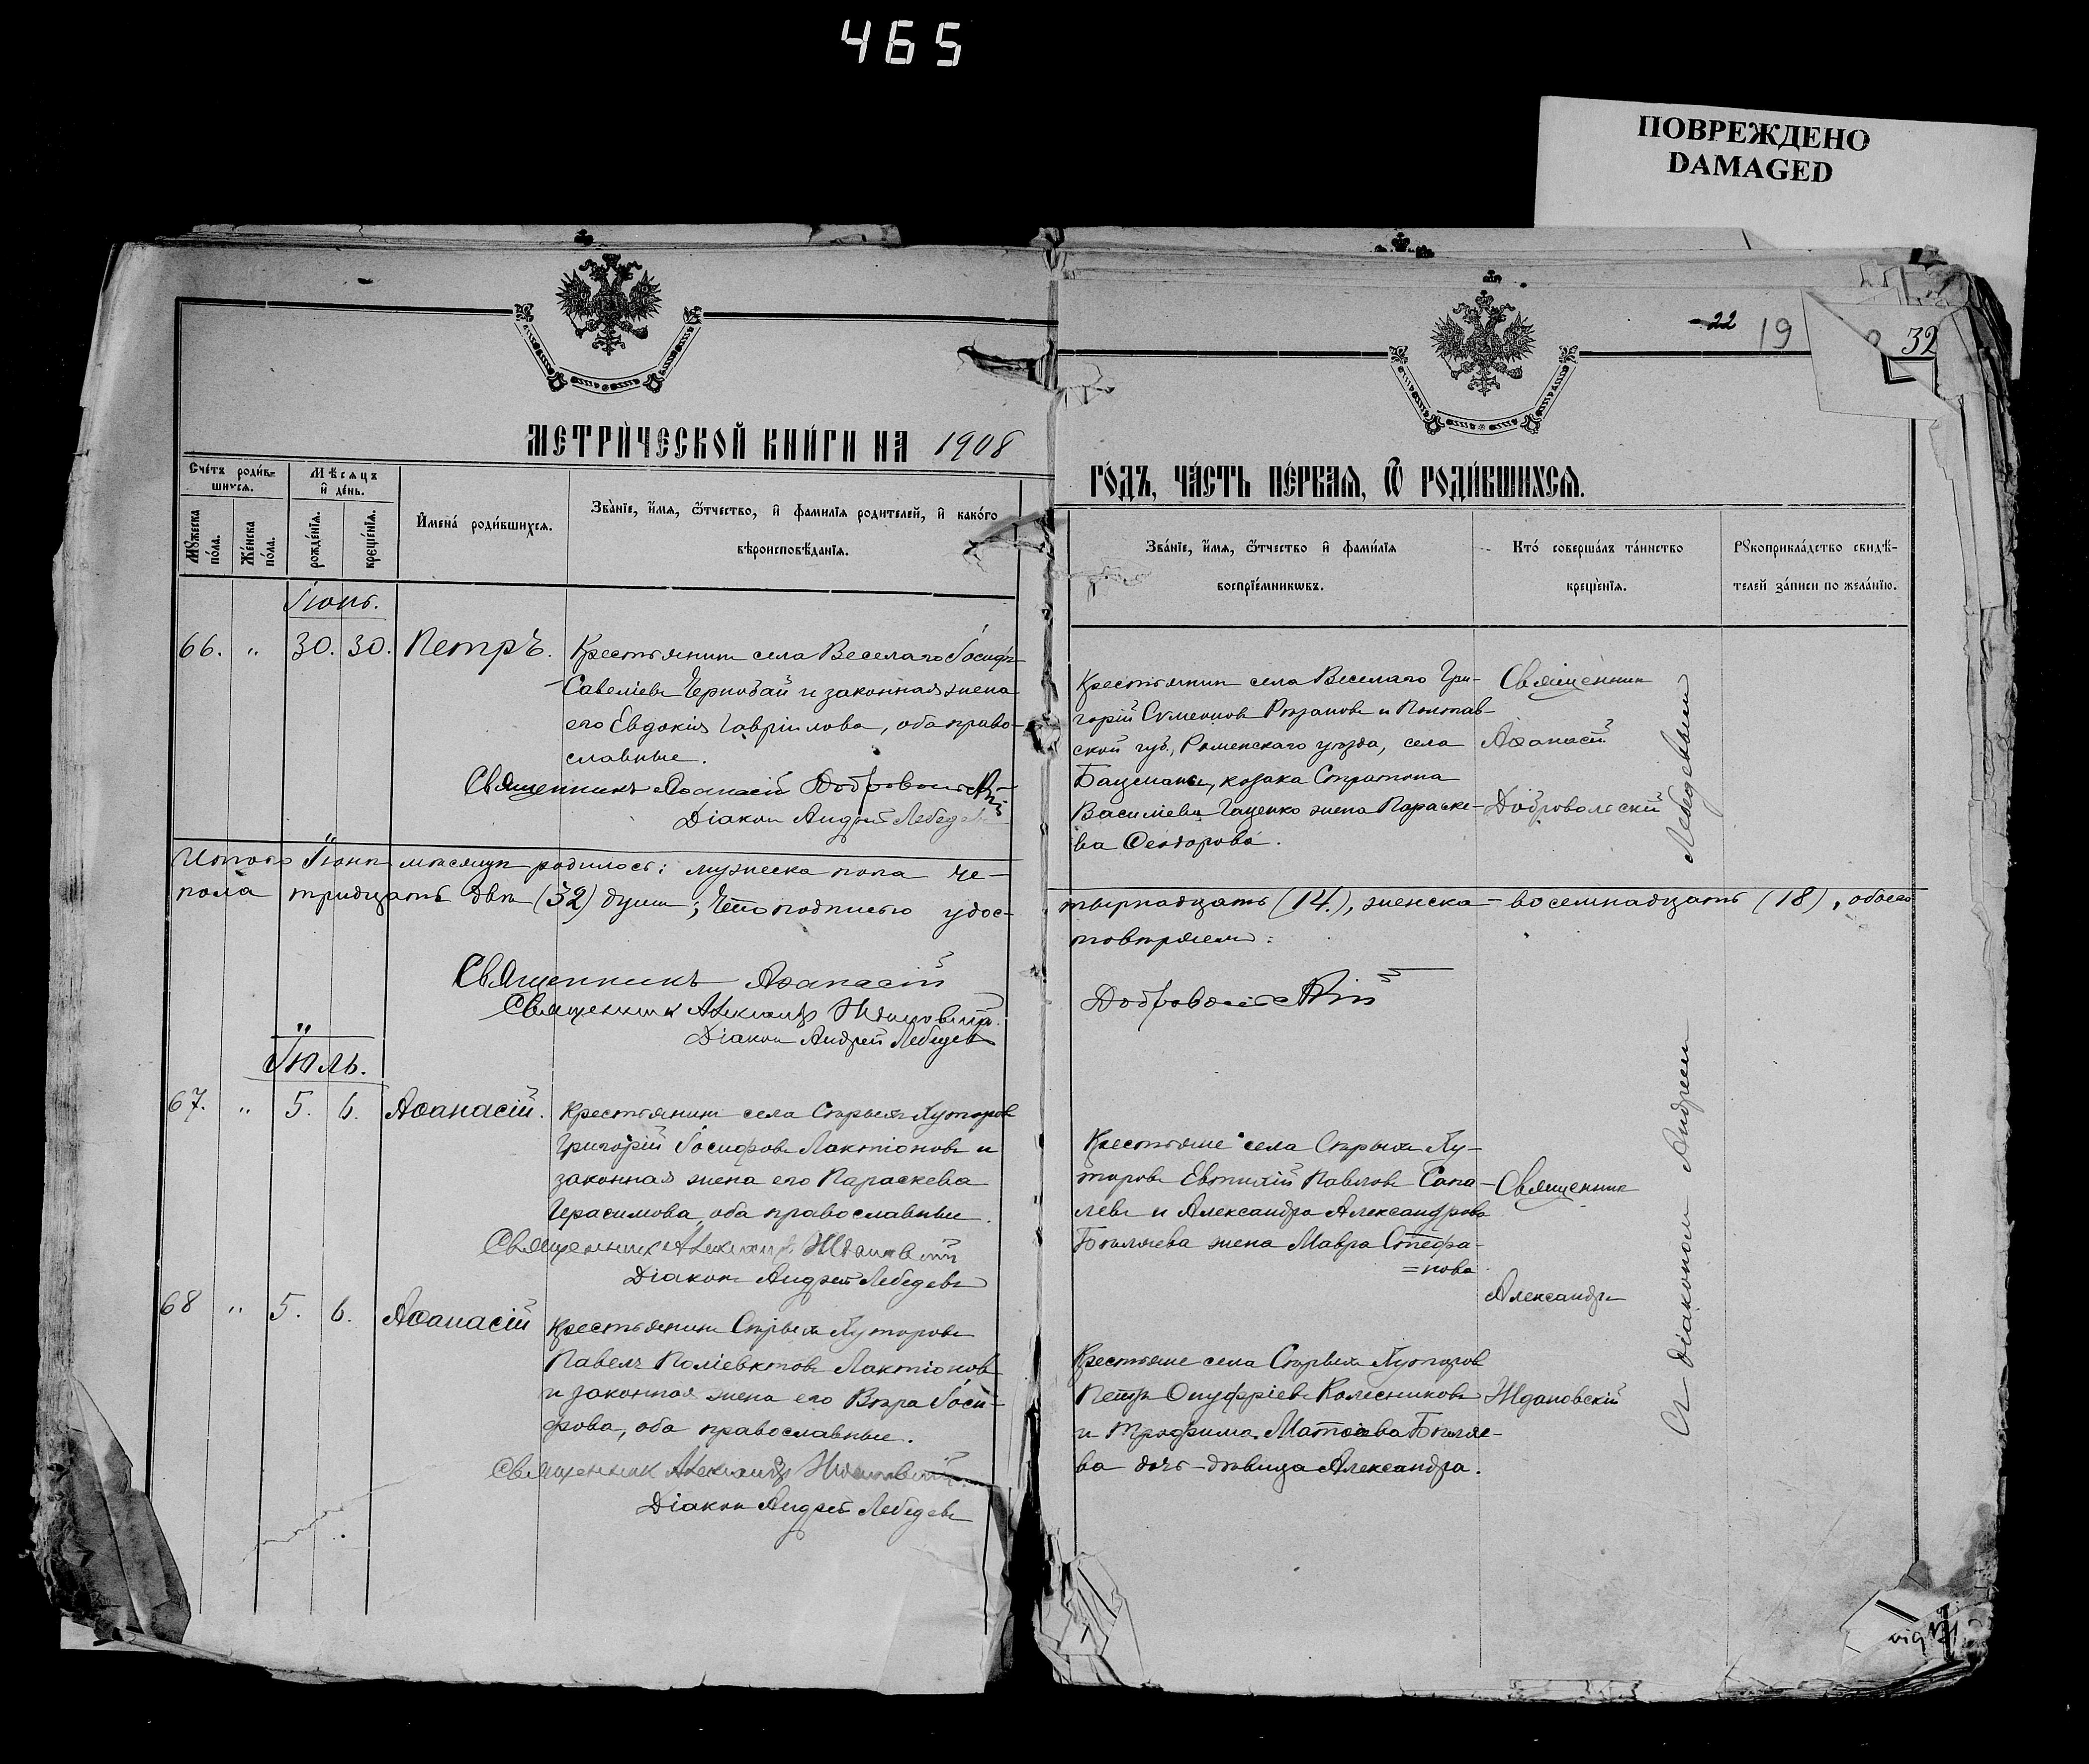 465
ПОВРЕЖДЕНО
DAMAGED
22 19 32
МЕТРИ́ЧЕСКОЙ КНИ́ГИ НА 1908
ГО́ДЪ, ЧА́СТЬ ПЕ́РВАЯ, Ѿ РОДИ́ВШИХСЯ.
Сче́тъ роди́в-
шихся.
Мѣ́сяцъ
и҆ де́нь.
Мꙋ́жеска
по́ла.
Же́нска
по́ла.
рожде́нїя.
креще́нїя.
И҆мена́ роди́вшихся.
Зва́нїе, и҆́мя, ѻ҆́тчество, и҆ фами́лїя роди́телей, и҆ како́го
вѣроисповѣ́данїя.
Зва́нїе, и҆́мя, ѻ҆́тчество и҆ фами́лїя
воспрїе́мникѡвъ.
Кто́ соверша́лъ та́инство
креще́нїя.
Рꙋкоприкла́дство свидѣ́-
телей за́писи по жела́нїю.
Іюнь.
66. " 30. 30. Петръ.
Крестьянинъ села Веселаго Іосифъ
Савеліевъ Черновай и законная жена
его Евдокія Гавріилова, оба право-
славные.
Священникъ Аѳанасій Добровольскій
Діаконъ Андрей Лебедевъ
Крестьянинъ села Веселаго Гри-
горій Сѵмеоновъ Рязановъ и Полтав-
ской губ., Роменскаго уѣзда, села
козака
Василіева Гаценко жена Параске-
ва Ѳеодорова.
Священникъ
Аѳанасій
Добровольскій
Итого Іюнѣ мѣсяцѣ родилось: мужеска пола че-
тырнадцать (14.), женска - восемнадцать (18), обоего
пола тридцать двѣ (32) души; Что подписью удос-
товѣряемъ:
Священникъ Аѳанасій
Добровольскій
Священникъ Александръ Ждановскій
Діаконъ Андрей Лебедевъ
Іюль.
67. " 5. 6. Аѳанасій.
Крестьянинъ села Старыхъ Хуторовъ
Григорій Іосифовъ Лактіоновъ и
законная жена его Параскева
Герасимова, оба православные.
Священникъ Александръ Ждановскій
Діаконъ Андрей Лебедевъ
Крестьяне села Старыхъ Ху-
торовъ Евтихій Павловъ Сапа-
левъ и Александра Александрова
Бѣляева жена Мавра Стефа-
=нова
Священникъ
68 " 5. 6. Аѳанасій
Крестьянинъ Старыхъ Хуторовъ
Павелъ Поліевктовъ Лактіоновъ
и законная жена его Вѣра Іоси-
фова, оба православные.
Священникъ Александръ Ждановскій
Діаконъ Андрей Лебедевъ
Крестьяне села Старыхъ Хуторовъ
Петръ Онуфріевъ Колесниковъ
и Трофима Матѳіева Бѣляе-
ва дочь-дѣвица Александра.
Александръ
Ждановскій
Съ діакономъ Андреемъ Лебедевымъ